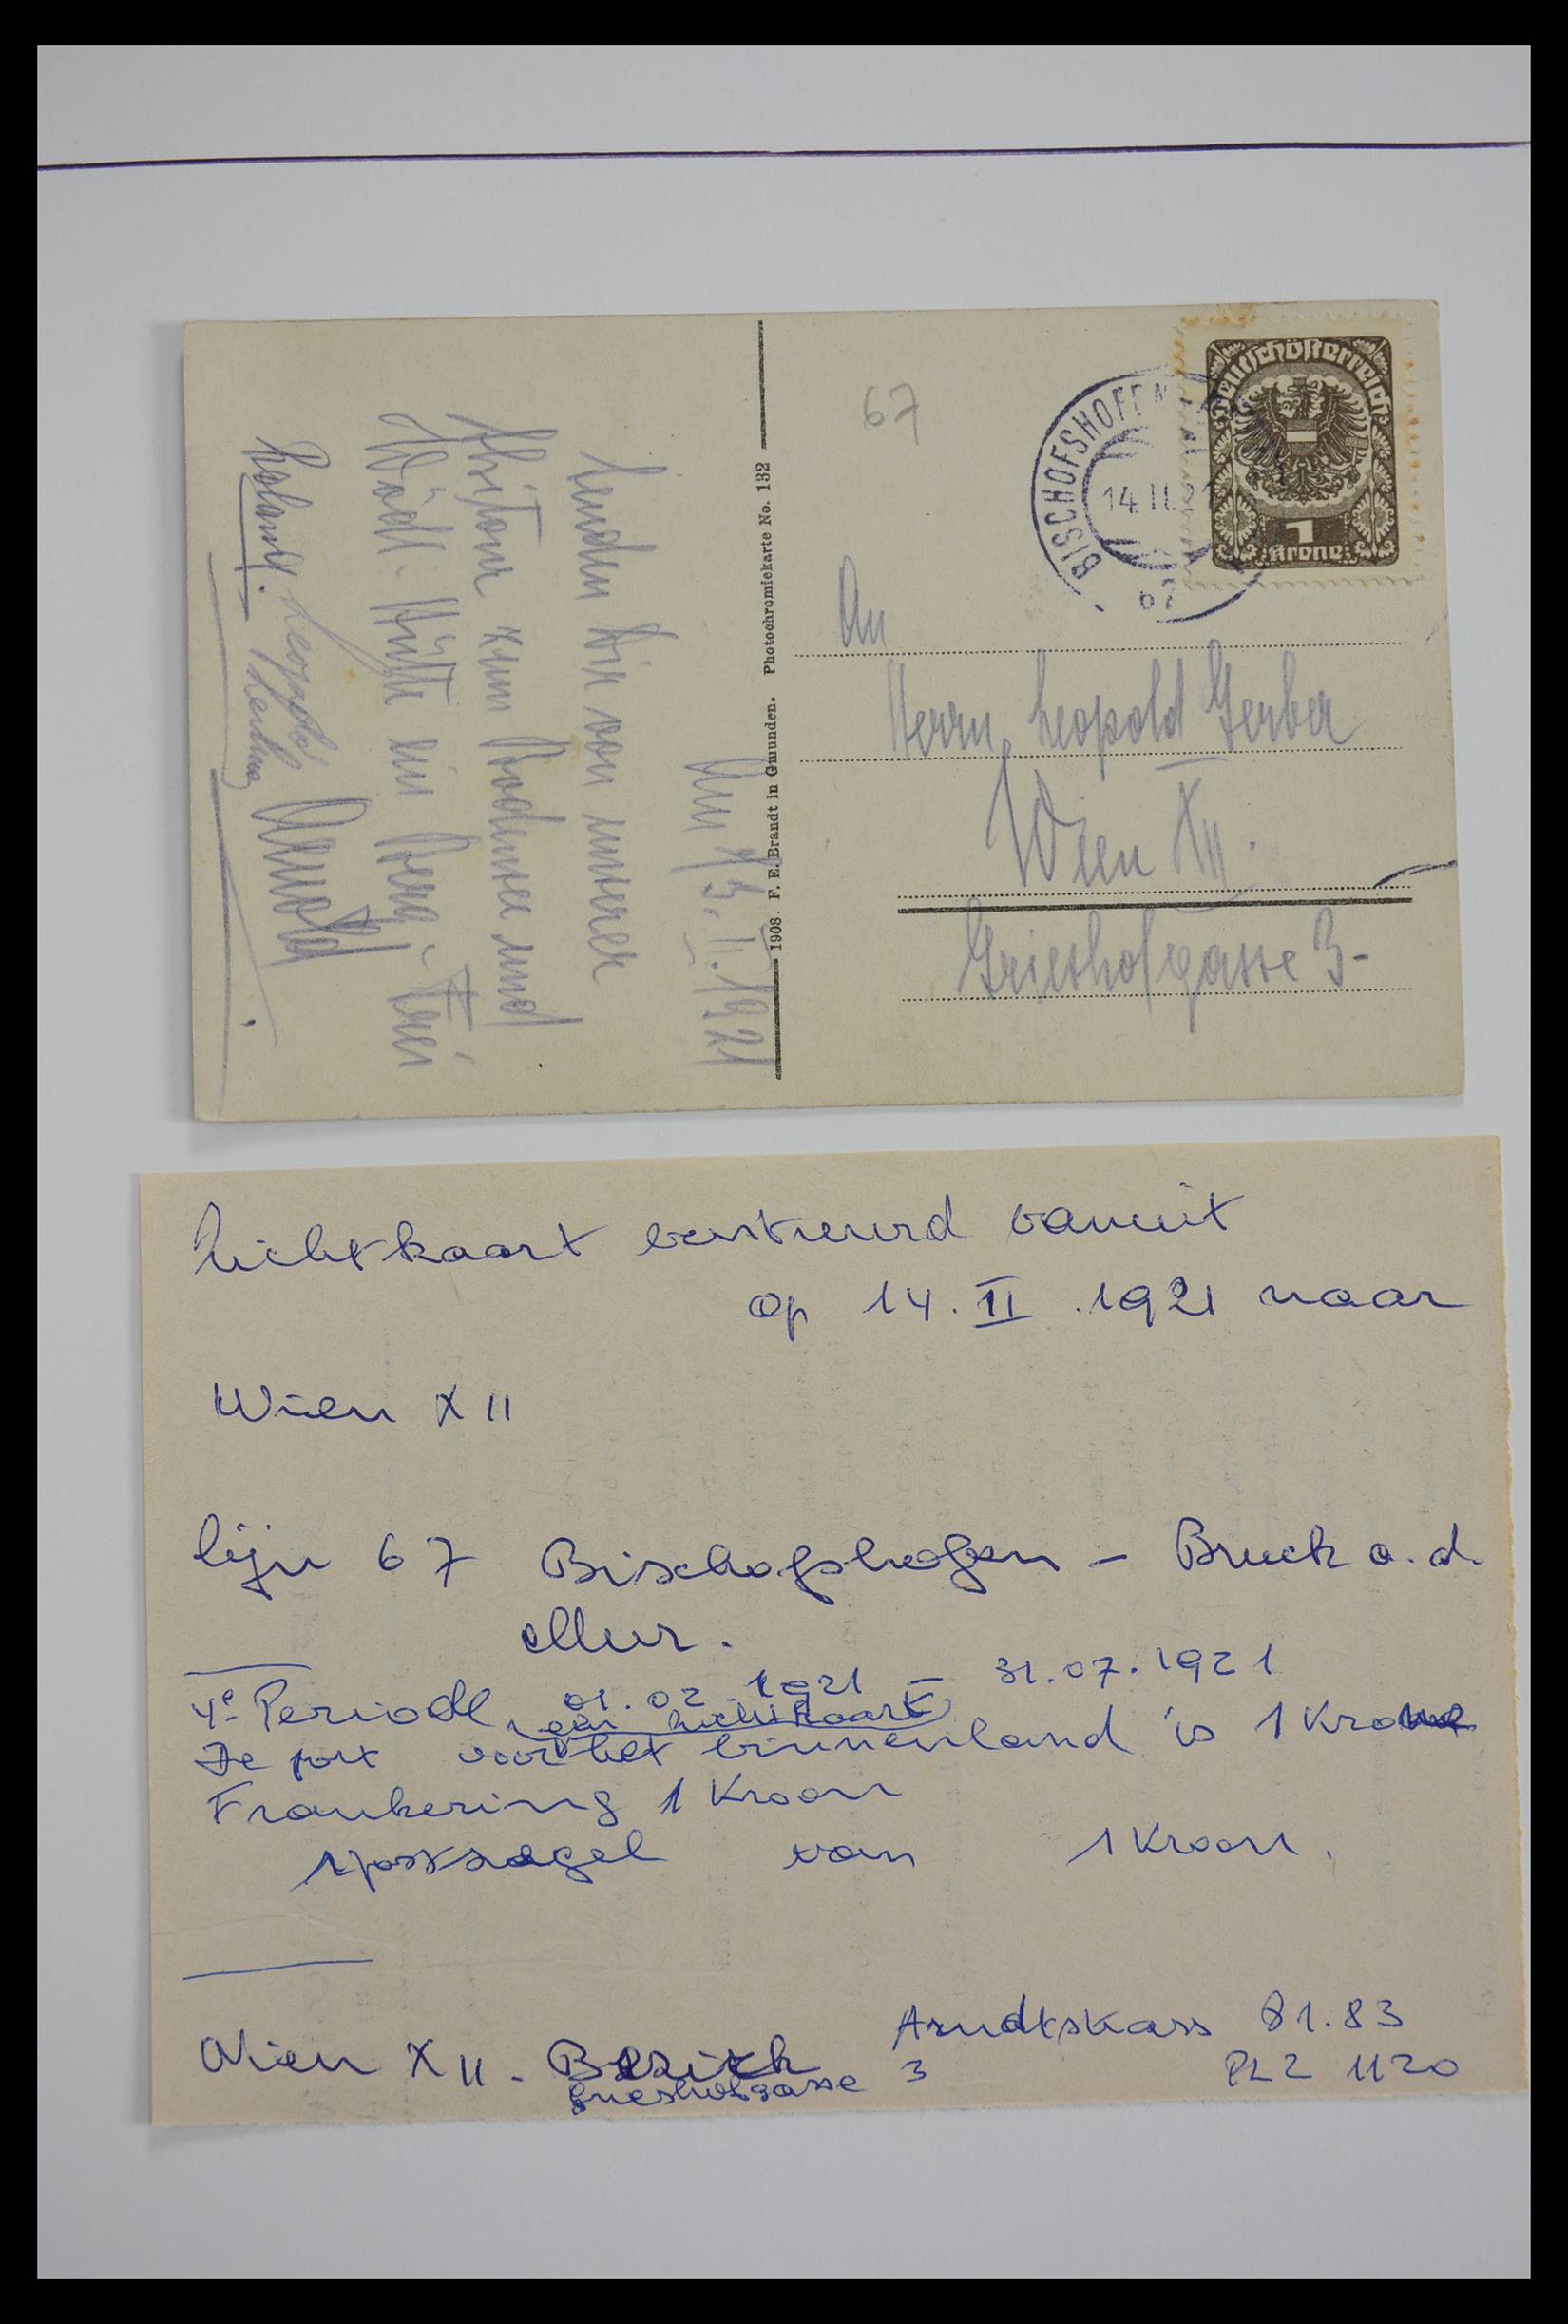 67
BISCHOFSHOFEN
14.II.21
67
Deutschösterreich
1
Krone
An
Herrn Leopold Gerber
Wien XII.
Grieshofgasse 3-
1908. F. E. Brandt in Gmunden. Photochromiekarte No. 132
Am 13.II.1921
Senden Dir von unserer
Skitour zum Bodensee und
Wödl-Hütte ein Berg-Frei
Roland. Leopold
Arnold
lichtkaart verstuurd vanuit
op 14. II .1921 naar
Wien XII
lijn 67 Bischofshofen - Bruck a.d.
Mur.
4e Periode 01.02 1921 - 31.07.1921
een lichtkaart
De port voor het binnenland is 1 Kro
Frankering 1 Kroon
1 postzegel van 1 Kroon.
Wien XII - Bezirk Arndtstrass 81.83
Grieshofgasse 3 PLZ 1120